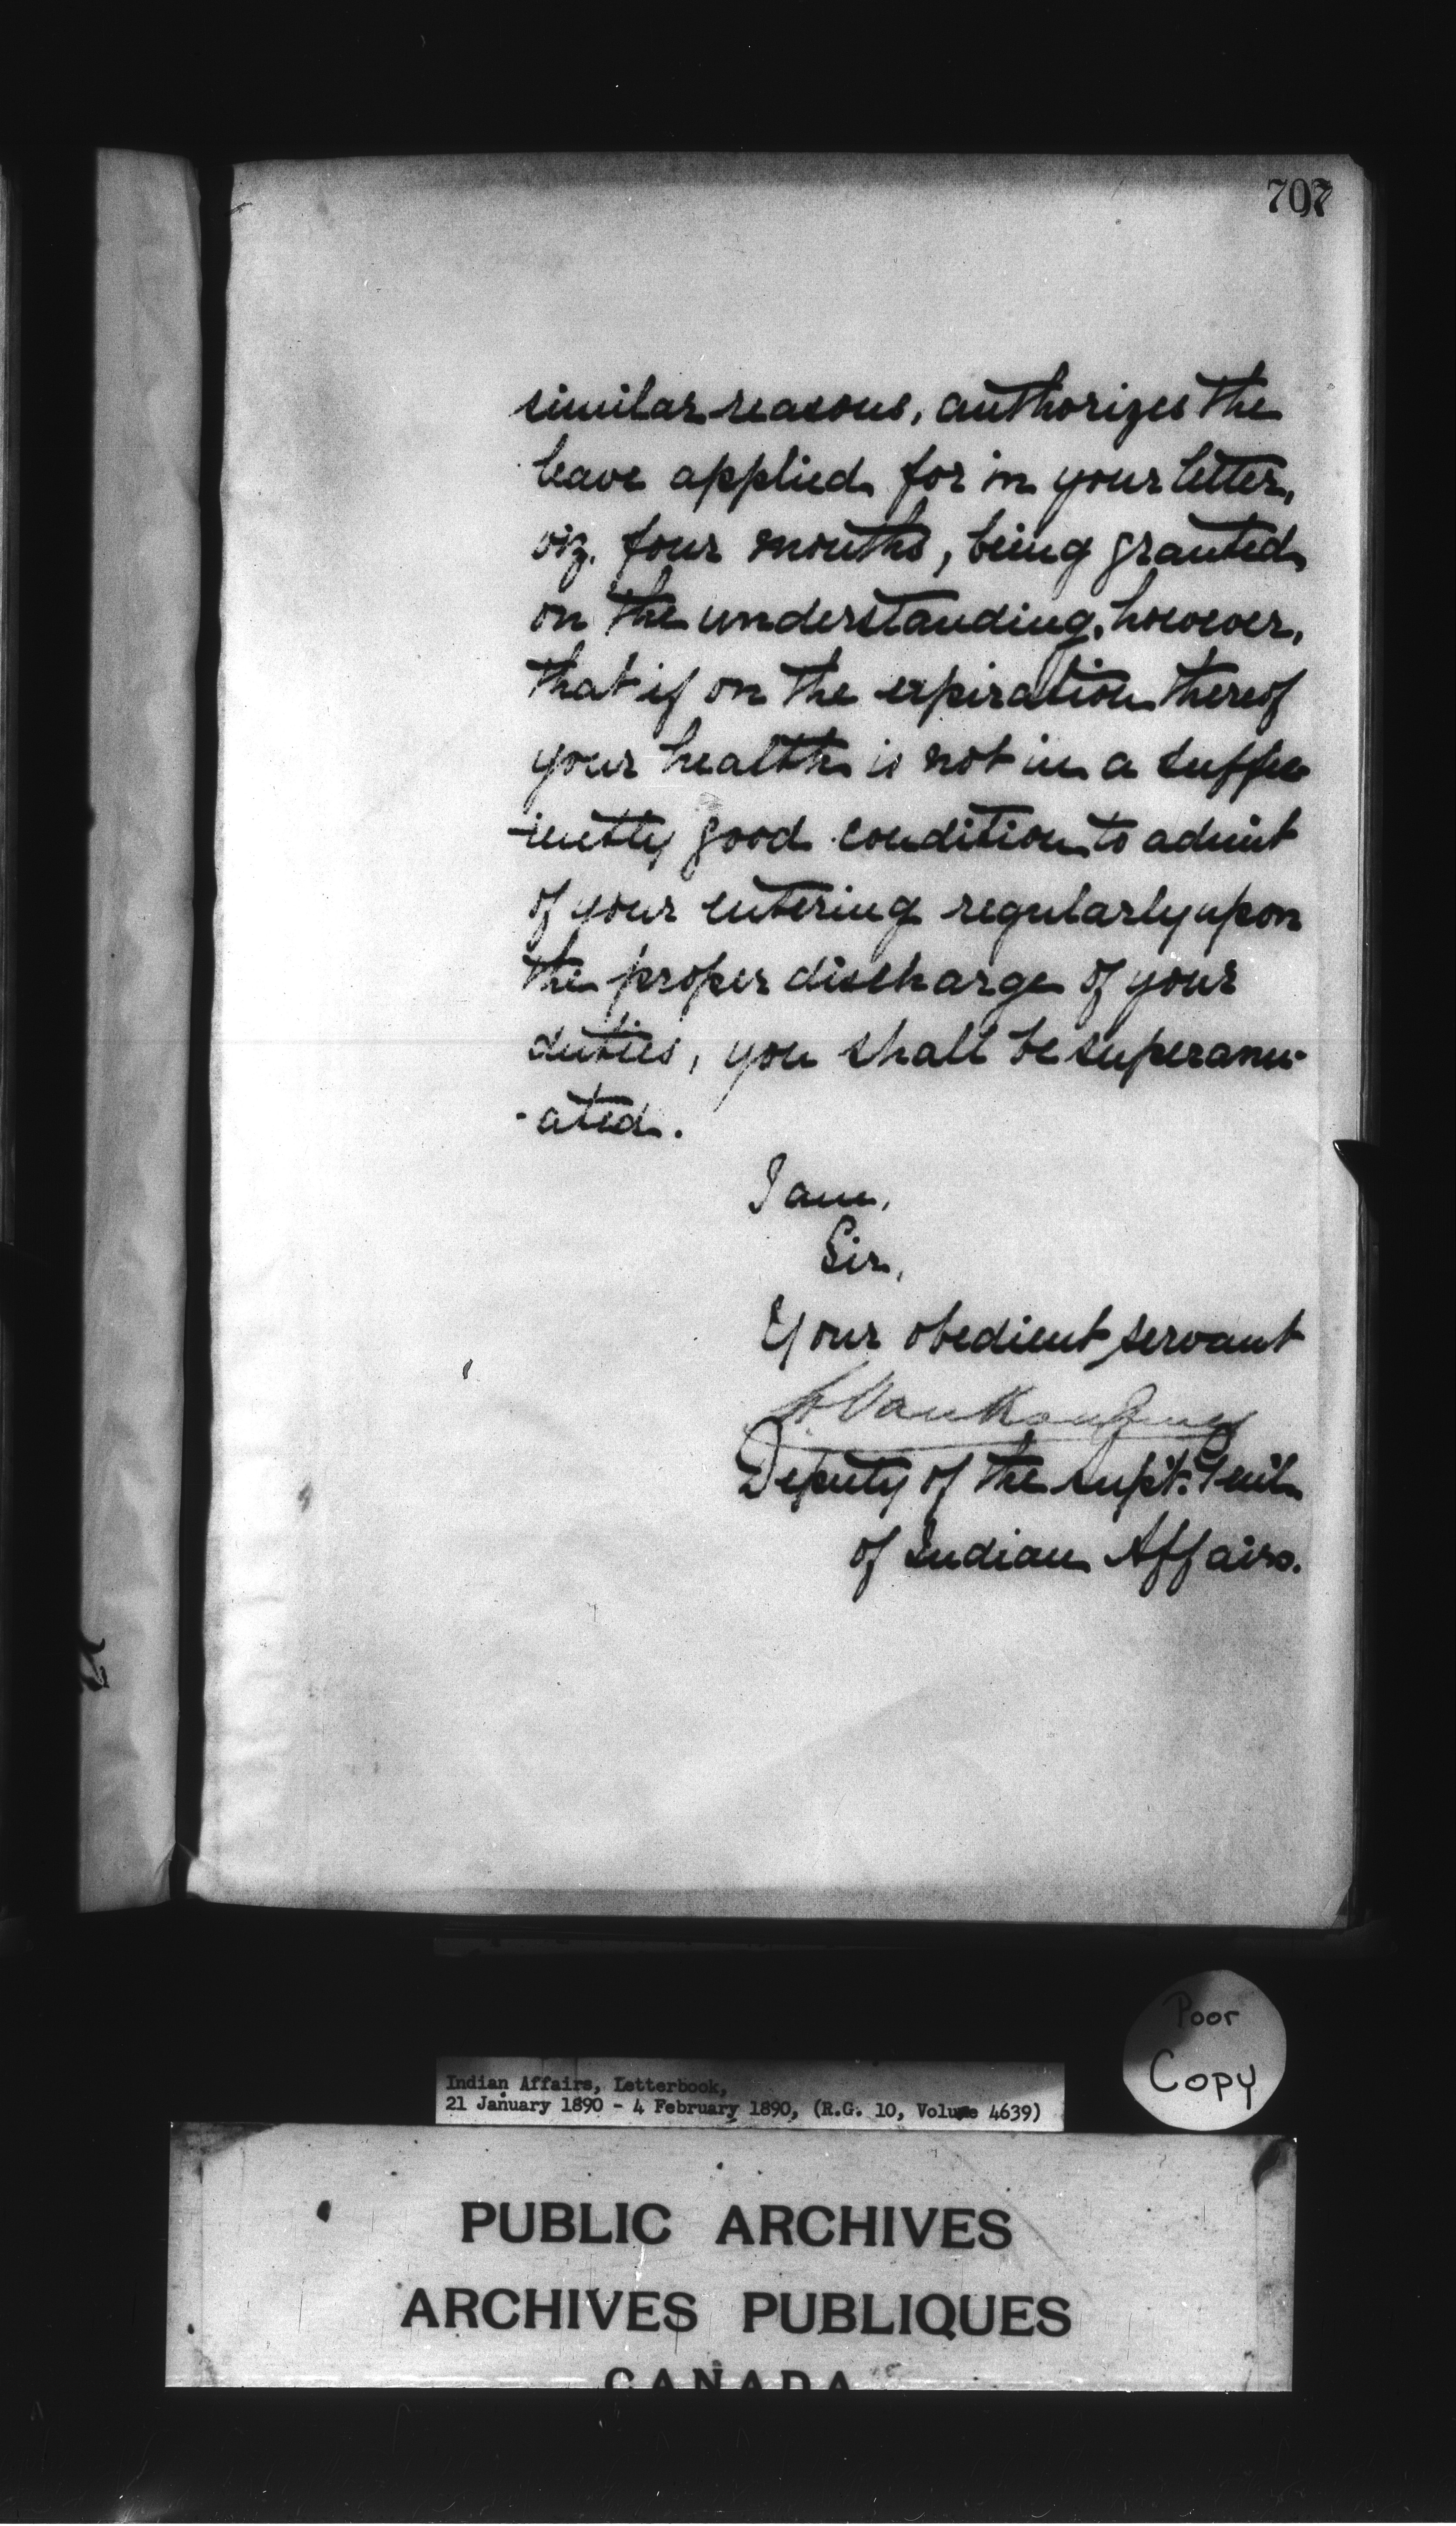 707
similar reasons, authorizes the
leave applied for in your letter,
viz. four months, being granted
on the understanding, however,
that if on the expiration thereof
your health is not in a suffic
-iently good condition to admit
of your entering regularly upon
the proper discharge of your
duties, you shall be superannu-
-ated.
I am,
Sir,
Your obedient servant
L. VanKoughnet
Deputy of the Supt. Genl.
of Indian Affairs.
Poor
Copy
Indian Affairs, Letterbook,
21 January 1890 - 4 February 1890, (R.G. 10, Volume 4639)
PUBLIC ARCHIVES
ARCHIVES PUBLIQUES
CANADA